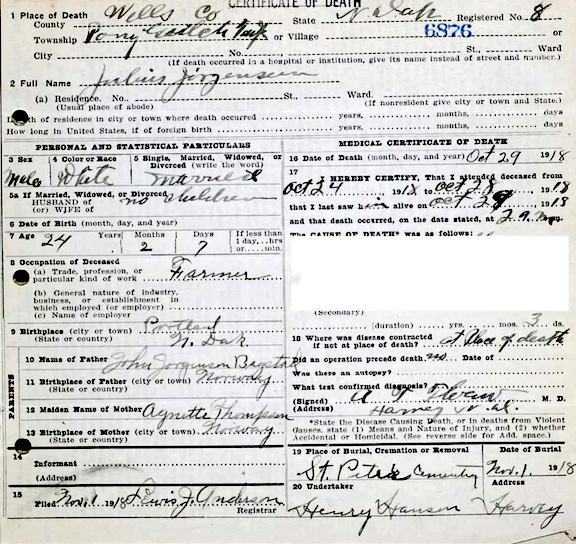 CERTIFICATE OF DEATH
1 Place of Death Wells Co State N. Dak Registered No. 8
County
Township Pony Gulch Twp or Village 6876 or
City No. St., Ward
(If death occurred in a hospital or institution, give its name instead of street and number.)
2 Full Name Julius Jorgensen
(a) Residence. No. St., Ward.
(Usual place of abode) (If nonresident give city or town and State.)
Length of residence in city or town where death occurred years, months, days
How long in United States, if of foreign birth years, months, days
PERSONAL AND STATISTICAL PARTICULARS
3 Sex 4 Color or Race 5 Single, Married, Widowed, or
Divorced (write the word)
Male White Married
5a If Married, Widowed, or Divorced
HUSBAND of no children
(or) WIFE of
6 Date of Birth (month, day, and year)
7 Age 24 Years Months Days If less than
2 7 1 day,...hrs
or......min.
8 Occupation of Deceased
(a) Trade, profession, or
particular kind of work Farmer
(b) General nature of industry,
business, or establishment in
which employed (or employer)
(c) Name of employer
9 Birthplace (city or town) Portland
(State or country) N. Dak
PARENTS
10 Name of Father John Jorginson
11 Birthplace of Father (city or town) Norway
(State or country)
12 Maiden Name of Mother Agnette Thompson
13 Birthplace of Mother (city or town) Norway
(State or country)
14
Informant
(Address)
15
Filed Nov. 1 1918 Lewis J. Anderson
Registrar
MEDICAL CERTIFICATE OF DEATH
16 Date of Death (month, day, and year) Oct 29 1918
17
I HEREBY CERTIFY, That I attended deceased from
Oct 24 1918 to Oct 28 1918
that I last saw him alive on Oct 28 1918
and that death occurred, on the date stated, at 2 a.m.
The CAUSE OF DEATH* was as follows:
(Secondary)
(duration) yrs. mos. 3 ds.
18 Where was disease contracted
if not at place of death? at Place of death
Did an operation precede death no Date of
Was there an autopsy?
What test confirmed diagnosis?
(Signed) M. D.
(Address) Harvey N. D.
*State the Disease Causing Death, or in deaths from Violent
Causes, state (1) Means and Nature of Injury, and (2) whether
Accidental or Homicidal. (See reverse side for Add. space.)
19 Place of Burial, Cremation or Removal Date of Burial
St. Petri Cemetery Nov. 1 1918
20 Undertaker Address
Henry Hanson Harvey